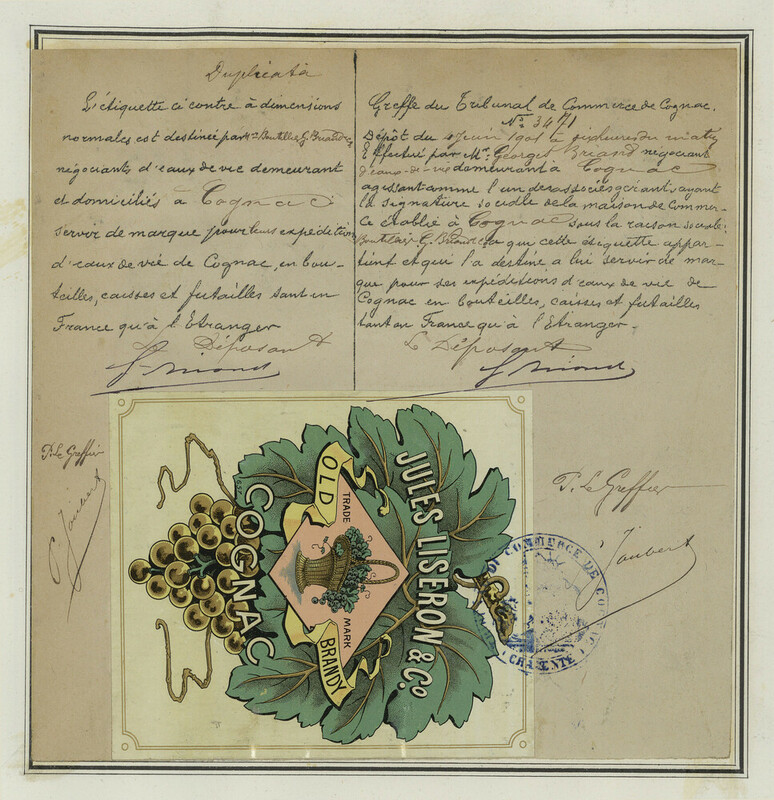 Duplicata
L'étiquette ci contre à dimensions
normales est destinée par
négociants d'eaux de vie demeurant
et domiciliés à Cognac à
servir de marque pour leurs expéditions
d'eaux de vie de Cognac, en bou-
teilles, caisses et futailles tant en
France qu'à l'Etranger
Le Déposant
Greffe du Tribunal de Commerce de Cognac.
No 3471
Dépôt du 4 Juin 1901 à heures du matin
Effectué par Mr. Georges Briand négociant
d'eaux-de-vie demeurant à Cognac
agissant comme l'un des associés gérants, ayant
la signature sociale de la maison de Commer-
ce établie à Cognac sous la raison sociale:
Boutelleau G. Briand & Co à qui cette étiquette appar-
tient et qui l'a destine à lui servir de mar-
que pour ses expéditions d'eaux de vie de
Cognac en bouteilles, caisses et futailles
tant en France qu'à l'Etranger.
Le Déposant
P. Le Greffier
Joubert
P. Le Greffier
Joubert
JULES LISERON & Co.
OLD BRANDY
TRADE MARK
COGNAC
COMMERCE DE COGNAC
CHARENTE